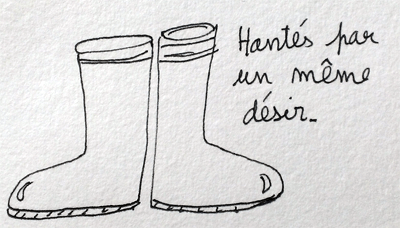 Hantés par
un même
désir.